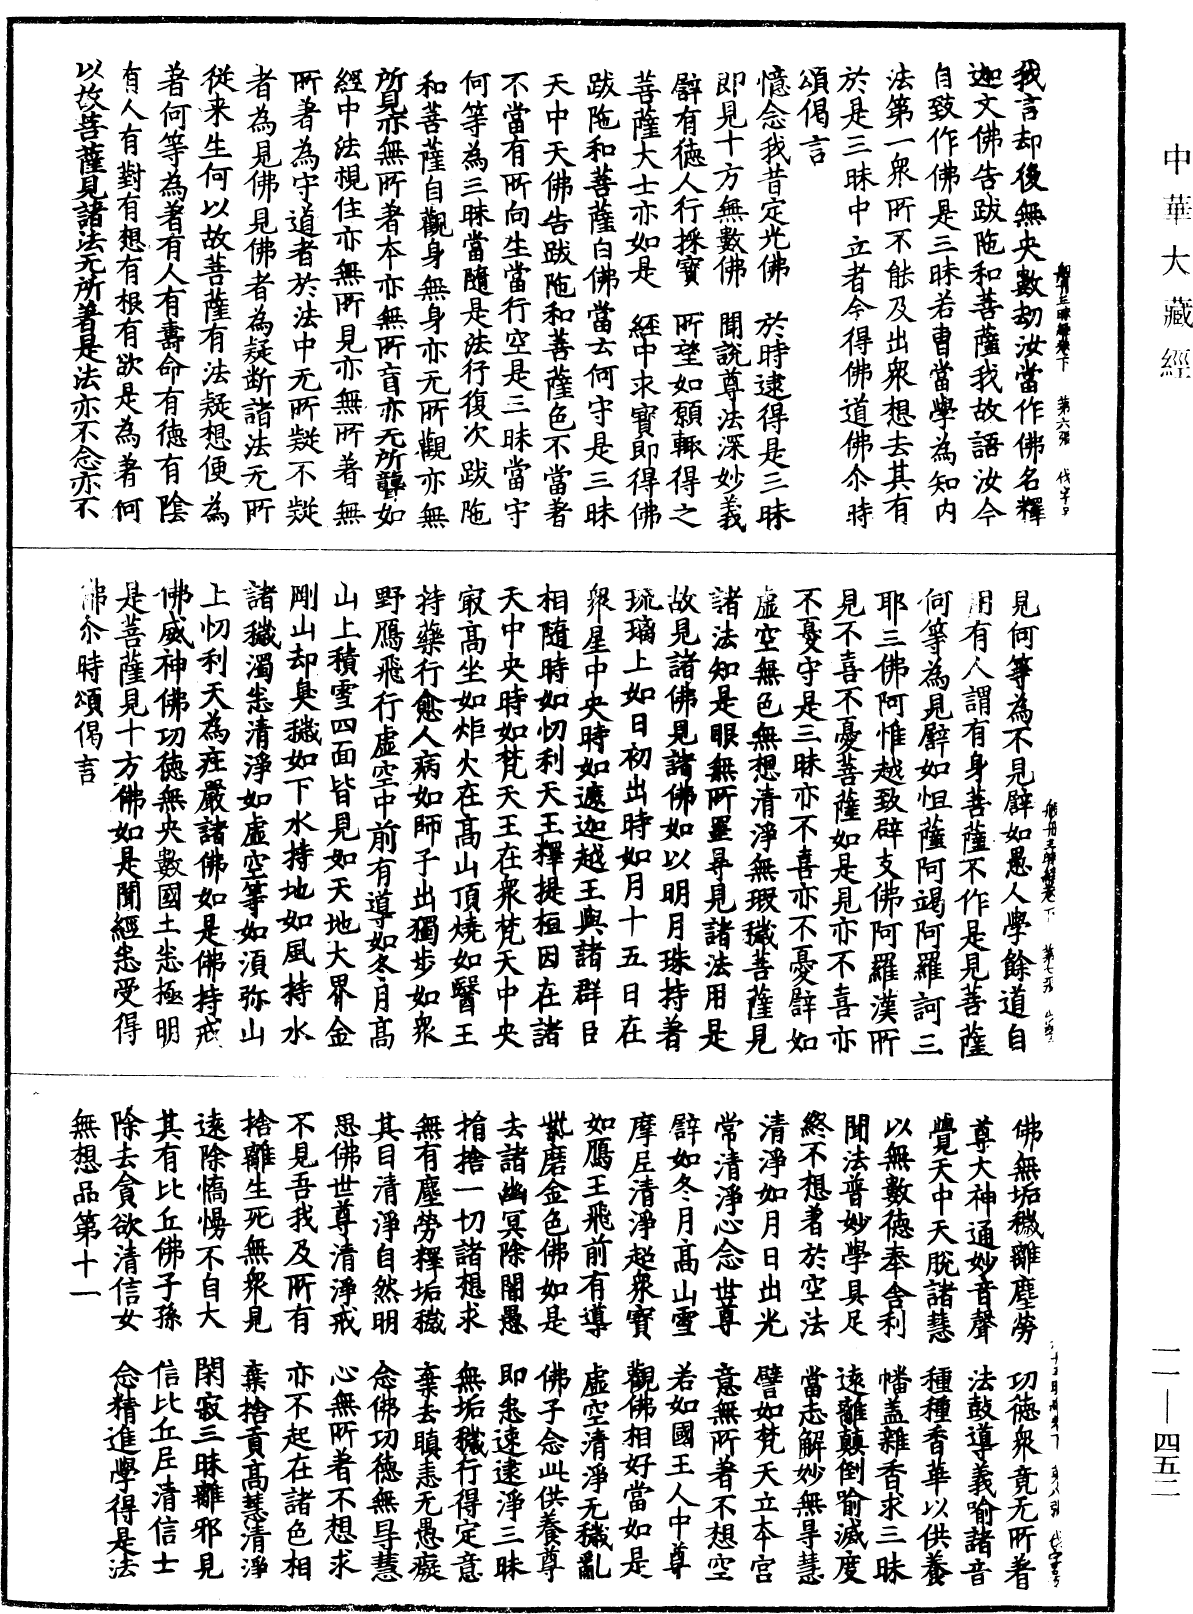 中華大藏經
般舟三昧經卷下　第六張　伐字号
我言却後無央數劫汝當作佛名釋
迦文佛告䟦陁和菩薩我故語汝今
自致作佛是三昧若曹當學為知内
法第一衆所不能及出衆想去其有
於是三昧中立者今得佛道佛尒時
頌偈言
憶念我昔定光佛　於時逮得是三昧
即見十方無數佛　聞說尊法深妙義
譬有徳人行採寳　所望如願輙得之
菩薩大士亦如是　經中求寳即得佛
䟦陁和菩薩白佛當云何守是三昧
天中天佛告䟦陁和菩薩色不當著
不當有所向生當行空是三昧當守
何等為三昧當隨是法行復次䟦陁
和菩薩自觀身無身亦无所觀亦無
所見亦無所著本亦無所盲亦无所聾如
經中法視住亦無所見亦無所著無
所著為守道者於法中无所疑不疑
者為見佛見佛者為疑断諸法无所
従来生何以故菩薩有法疑想便為
著何等為著有人有壽命有徳有陰
有人有對有想有根有欲是為著何
以故菩薩見諸法无所著是法亦不念亦不
般舟三昧經卷下　第七張
見何等為不見譬如愚人學餘道自
用有人謂有身菩薩不作是見菩薩
何等為見譬如怛薩阿竭阿羅訶三
耶三佛阿惟越致辟支佛阿羅漢所
見不喜不憂菩薩如是見亦不喜亦
不憂守是三昧亦不喜亦不憂譬如
虚空無色無想清淨無瑕穢菩薩見
諸法知是眼無所罣㝵見諸法用是
故見諸佛見諸佛如以明月珠持著
琉璃上如日初出時如月十五日在
衆星中央時如遮迦越王與諸群臣
相隨時如忉利天王釋提桓因在諸
天中央時如梵天王在衆梵天中央
㝡高坐如炬火在高山頂燒如醫王
持藥行愈人病如師子出獨步如衆
野鴈飛行虚空中前有導如冬月高
山上積雪四面皆見如天地大界金
剛山却臭穢如下水持地如風持水
諸穢濁悉清淨如虚空等如湏弥山
上忉利天為㽵嚴諸佛如是佛持戒
佛威神佛功徳無央數國土悉極明
是菩薩見十方佛如是聞經悉受得
佛尒時頌偈言
佛無垢穢離塵勞　功徳衆竟无所著
尊大神通妙音聲　法鼓導義喻諸音
覺天中天脫諸慧　種種香華以供養
以無數徳奉舎利　幡盖雜香求三昧
聞法普妙學具足　遠離顛倒喻滅度
終不想著於空法　當志解妙無㝵慧
清淨如月日出光　譬如梵天立本宮
常清淨心念世尊　意無所著不想空
譬如冬月高山雪　若如國王人中尊
摩尼清淨超衆寳　觀佛相好當如是
如鴈王飛前有導　虚空清淨无穢亂
紫磨金色佛如是　佛子念此供養尊
去諸幽冥除闇愚　即悉速逮淨三昧
捐捨一切諸想求　無垢穢行得定意
無有塵勞釋垢穢　棄去瞋恚无愚癡
其目清淨自然明　念佛功徳無㝵慧
思佛世尊清淨戒　心無所著不想求
不見吾我及所有　亦不起在諸色相
捨離生死無衆見　棄捨貢高慧清淨
遠除憍慢不自大　閑寂三昧離邪見
其有比丘佛子孫　信比丘尼清信士
除去貪欲清信女　念精進學得是法
無想品第十一
一一—四五二